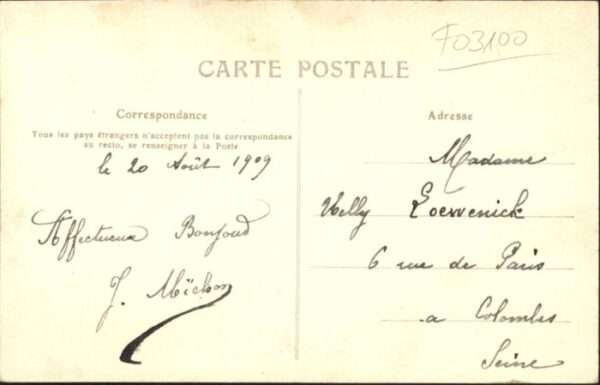 F03100
CARTE POSTALE
Correspondance
Tous les pays étrangers n'acceptent pas la correspondance
au recto, se renseigner à la Poste
le 20 Août 1909
Affectueux Bonjour
J. Michon
Adresse
Madame
Nelly Loewenick
6 rue de Paris
a Colombes
Seine